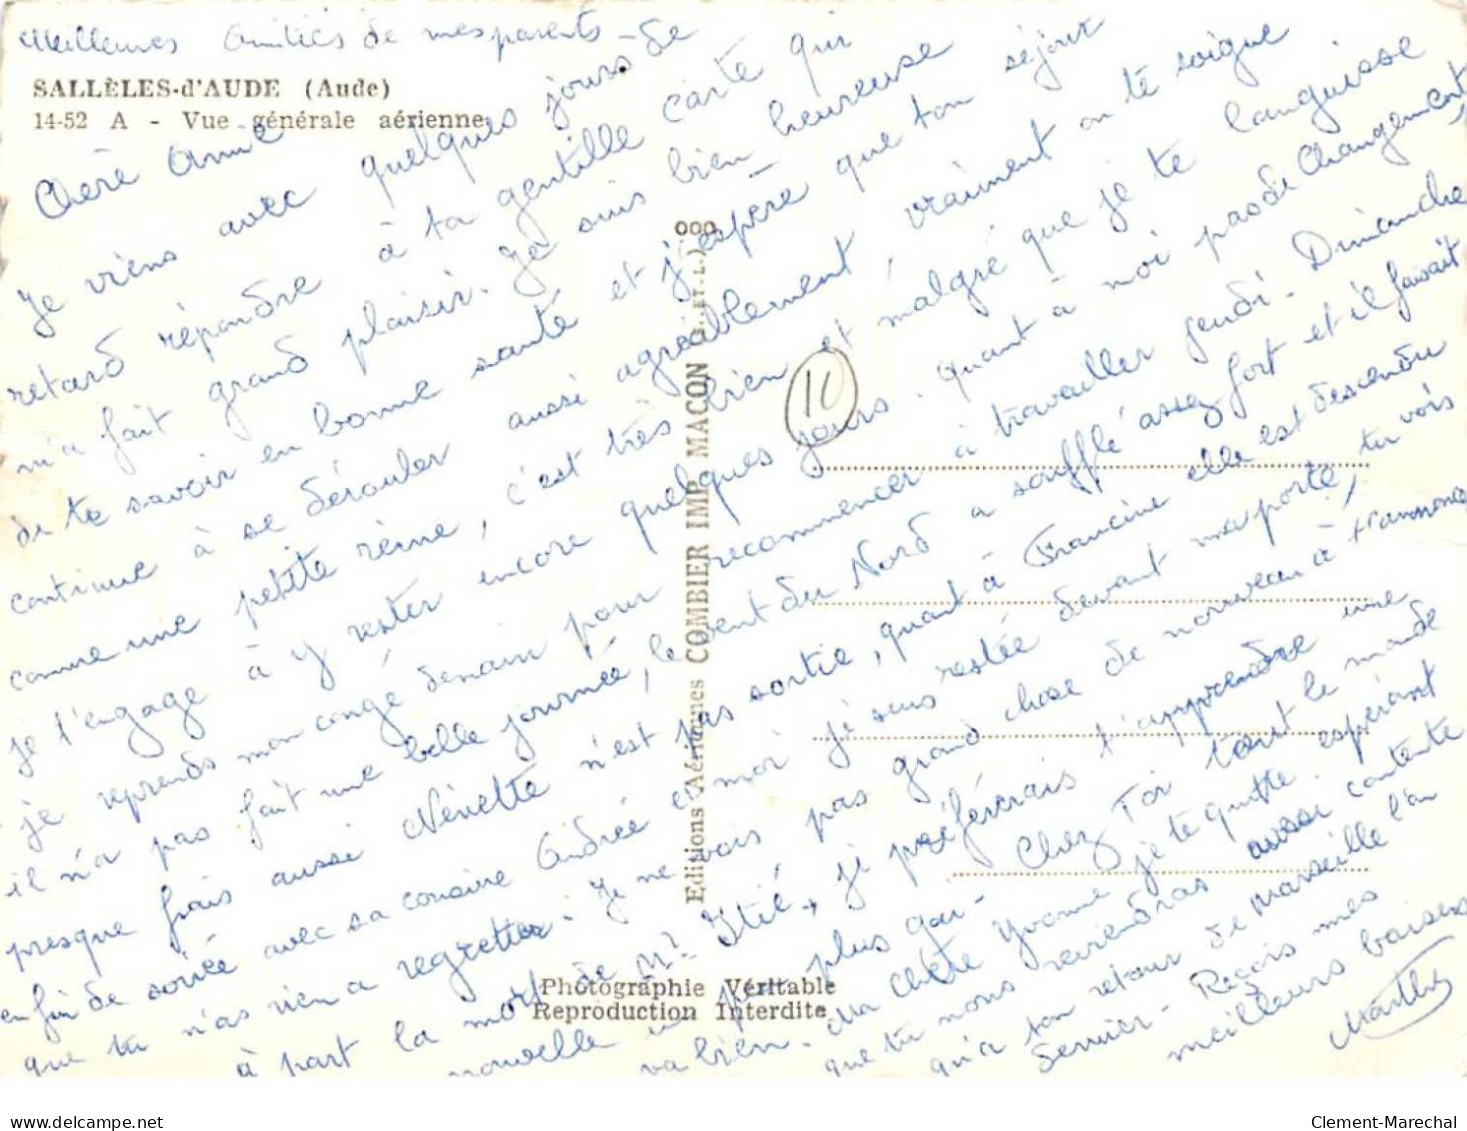 Meilleures Amitiés de mes parents -
SALLÈLES-d'AUDE (Aude)
14-52 A - Vue générale aérienne
Chère Amie
Je viens avec quelques jours de
retard répondre à ta gentille carte qui
m'a fait grand plaisir. Je suis bien heureuse
de te savoir en bonne santé et j'espère que ton séjour
continue à se dérouler aussi agréablement, vraiment on te soigne
comme une petite reine, c'est très bien et malgré que je te languisse
je t'engage à y rester encore quelques jours. quant à moi pas de changement,
je reprends mon congé demain pour recommencer à travailler jeudi. Dimanche
il n'a pas fait une belle journée, le vent du Nord a soufflé assez fort et il faisait
presque frais aussi Nénette n'est pas sortie, quant à Francine elle est descendue
en fin de soirée avec sa cousine Andrée et moi je suis restée devant ma porte, tu vois
que tu n'as rien a regretter. Je ne vois pas grand chose de nouveau à t'annoncer
à part la mort de Mr Itié, je préférerais t'apprendre une
nouvelle un peu plus gai - Chez Toi tout le monde
va bien. Ma chère Yvonne je te quitte espérant
que tu nous reviendras aussi contente
qu'a ton retour de Marseille l'an
dernier - Reçois mes
meilleurs baisers
Marthe
10
Editions Aériennes COMBIER IMP. MACON (S.-ET-L.) ooo
Photographie Véritable
Reproduction Interdite
Clement-Marechal
delcampe.net